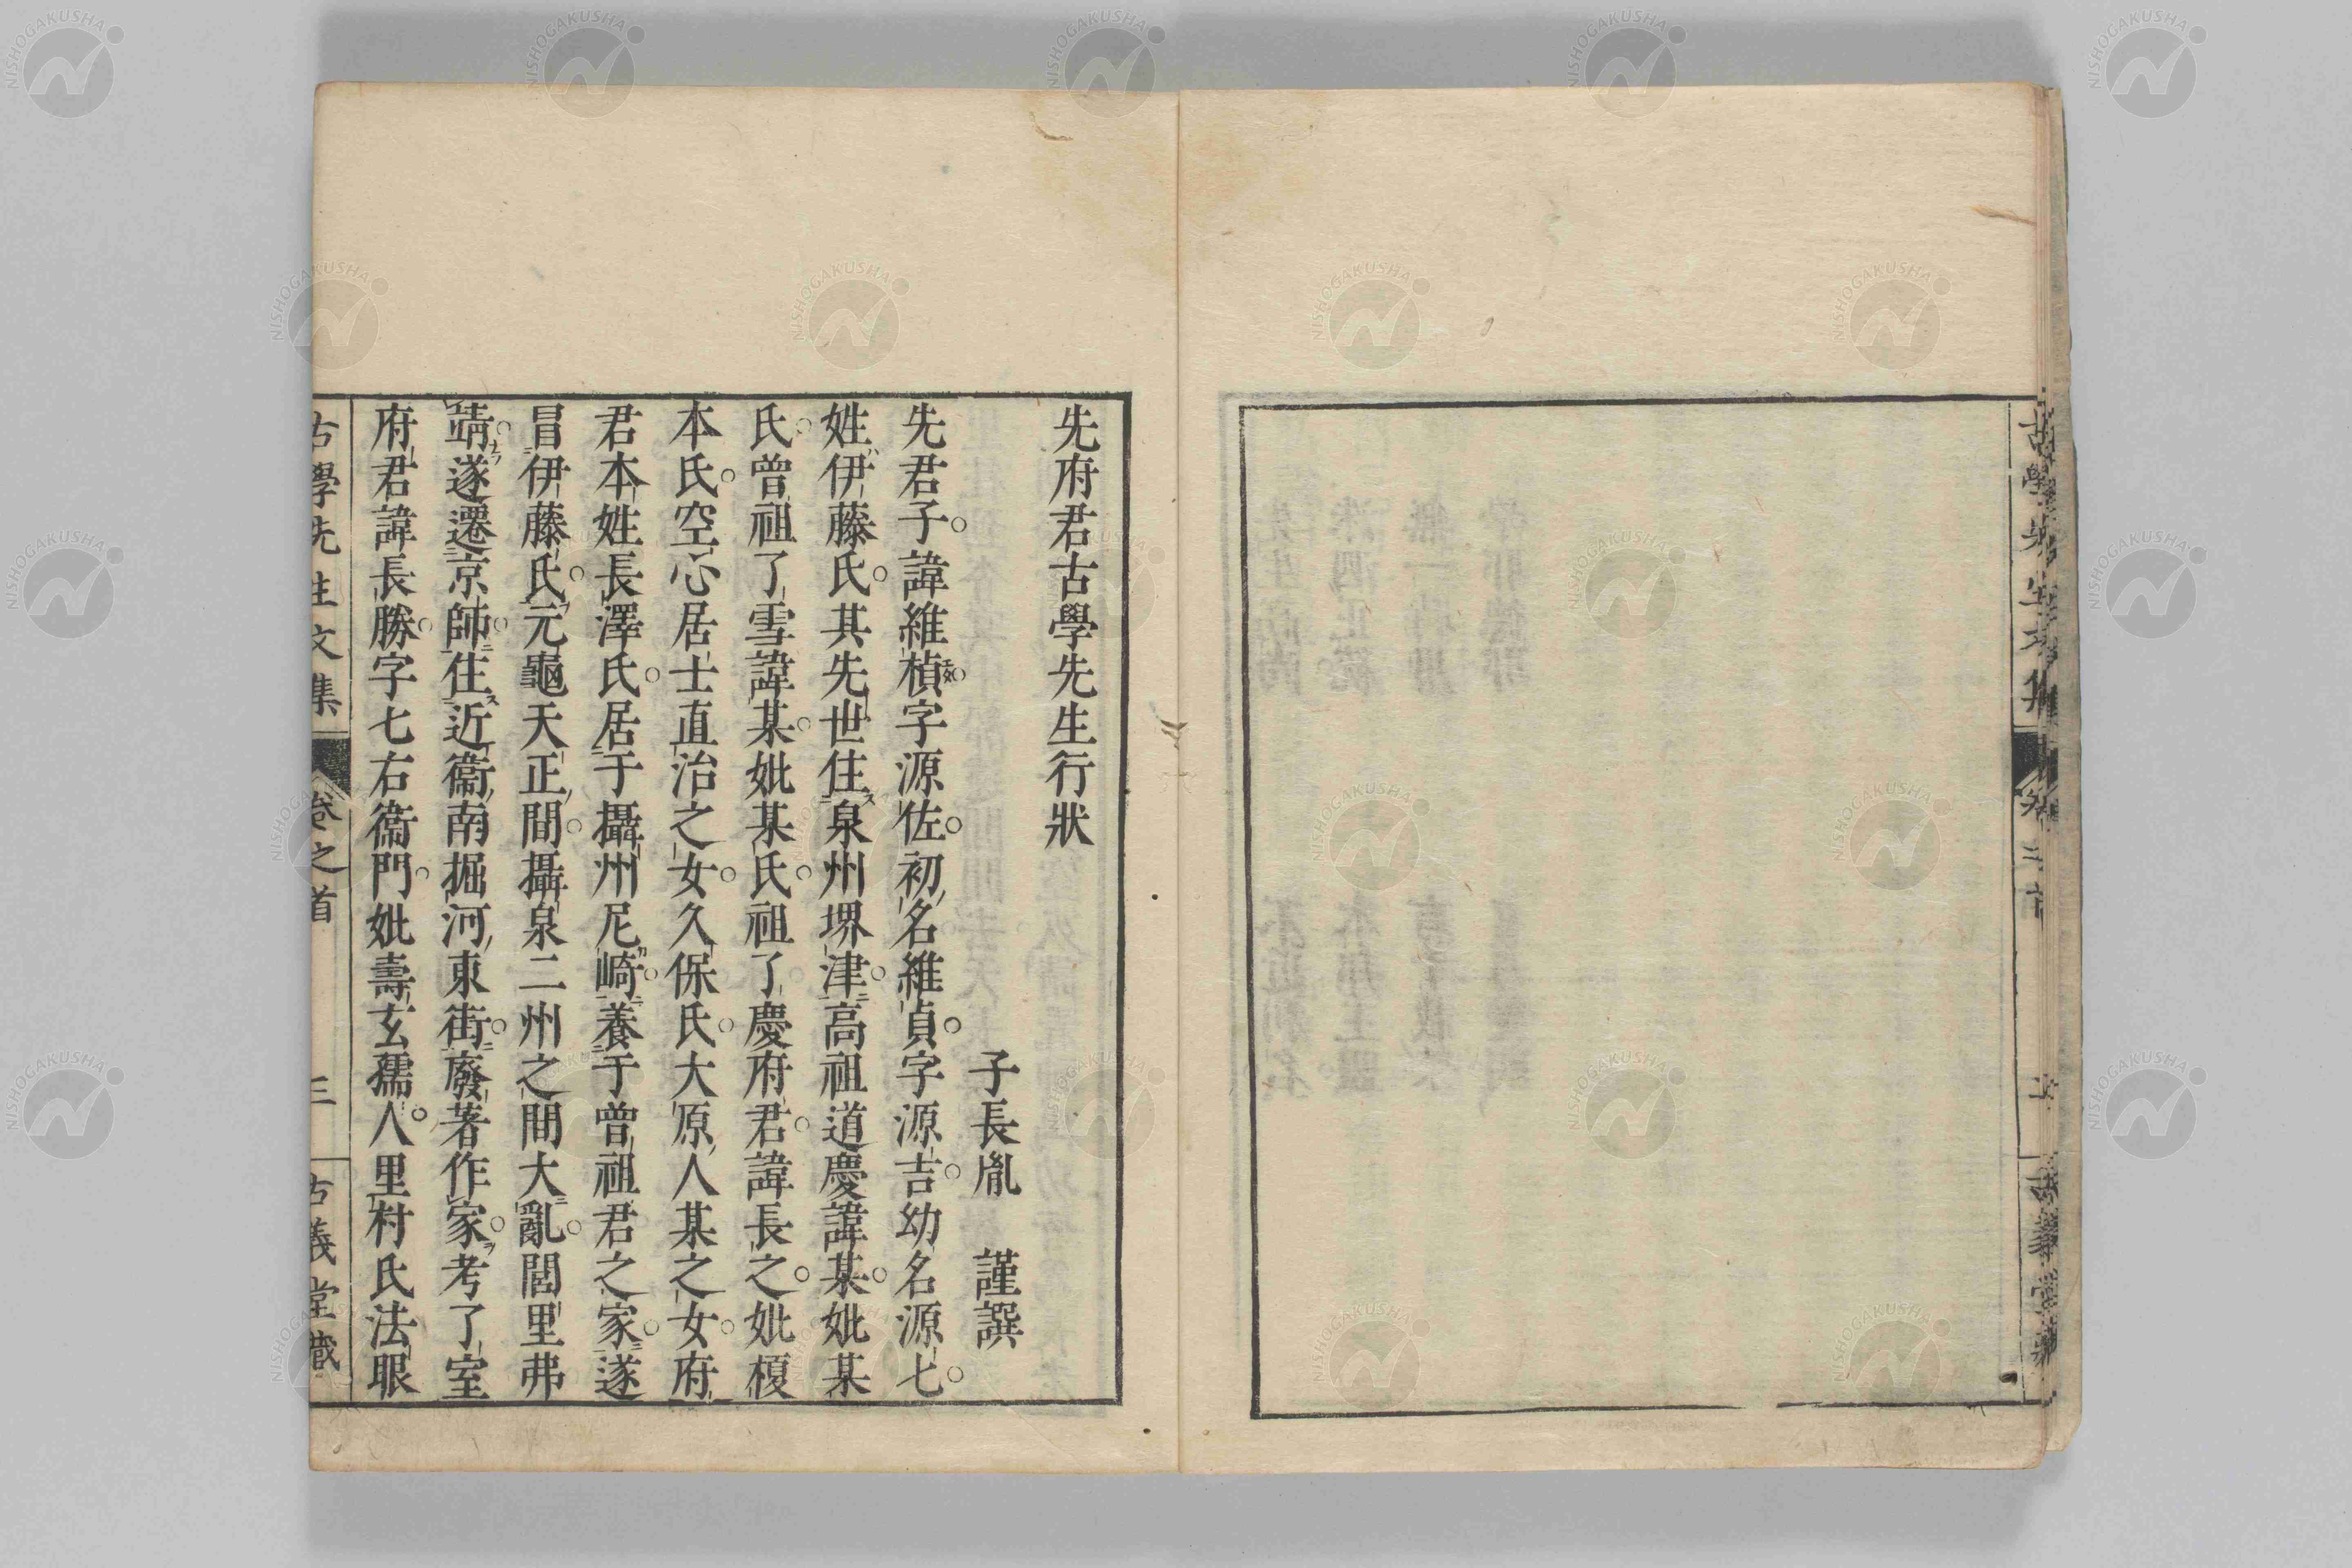 先府君古學先生行狀
子長胤 謹譔
先君子。諱維楨。字源佐。初名維貞。字源吉。幼名源七。
姓伊藤氏。其先世住泉州堺津。高祖道慶諱某。妣某
氏。曾祖了雪諱某。妣某氏。祖了慶府君。諱長之。妣榎
本氏。空心居士直治之女。久保氏。大原人某之女。府
君本姓長澤氏。居于攝州尼崎。養于曾祖君之家。遂
冒伊藤氏。元龜天正間。攝泉二州之間大亂。閭里弗
靖。遂遷京師。住近衞南掘河東街。廢著作家。考了室
府君諱長勝。字七右衞門。妣壽玄孺人。里村氏法眼
古學先生文集 卷之首 三 古義堂藏
NISHOGAKUSHA